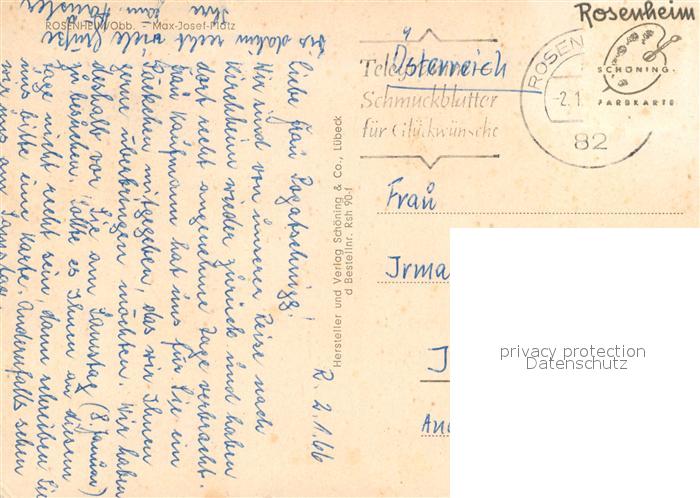 Rosenheim
ROSENHEIM/Obb. – Max-Josef-Platz
R. 2.1.66
Liebe Frau
Wir sind von unserer Reise nach
Kirchheim wieder zurück und haben
dort recht angenehme Tage verbracht.
Frau Kaufmann hat uns für Sie ein
Päckchen mitgegeben, das wir Ihnen
gerne überbringen möchten. Wir haben
deshalb vor, Sie am Samstag (8. Januar)
zu besuchen. Sollte es Ihnen an diesem
Tage nicht recht sein, dann schreiben Sie
uns bitte eine Karte. Andernfalls sehen
wir uns am Samstag.
Bis dahin recht viele Grüße
Ihre
Hersteller und Verlag Schöning & Co., Lübeck
d Bestellnr. Rsh 90-f
Österreich
Schmuckblätter
für Glückwünsche
ROSEN
-2.1
82
SCHÖNING-
FARBKARTE
Frau
Irma
J
privacy protection
Datenschutz